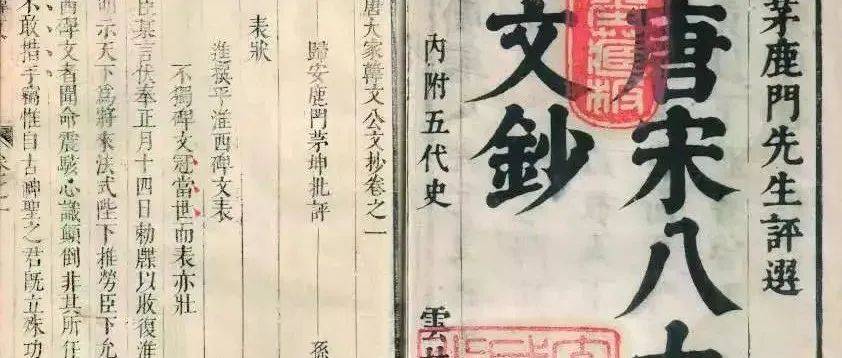 茅鹿門先生評選
唐宋八大
文鈔
內附五代史
唐大家韓文公文抄卷之一
歸安鹿門茅坤批評
表狀
進撰平淮西碑文表
不獨碑文冠當世而表亦壯
臣某言伏奉正月十四日勅牒以收復淮
明示天下爲將來法式陛下推勞臣下允
西碑文者聞命震駭心識顛倒非其所任
不敢措手竊惟自古神聖之君既立殊功